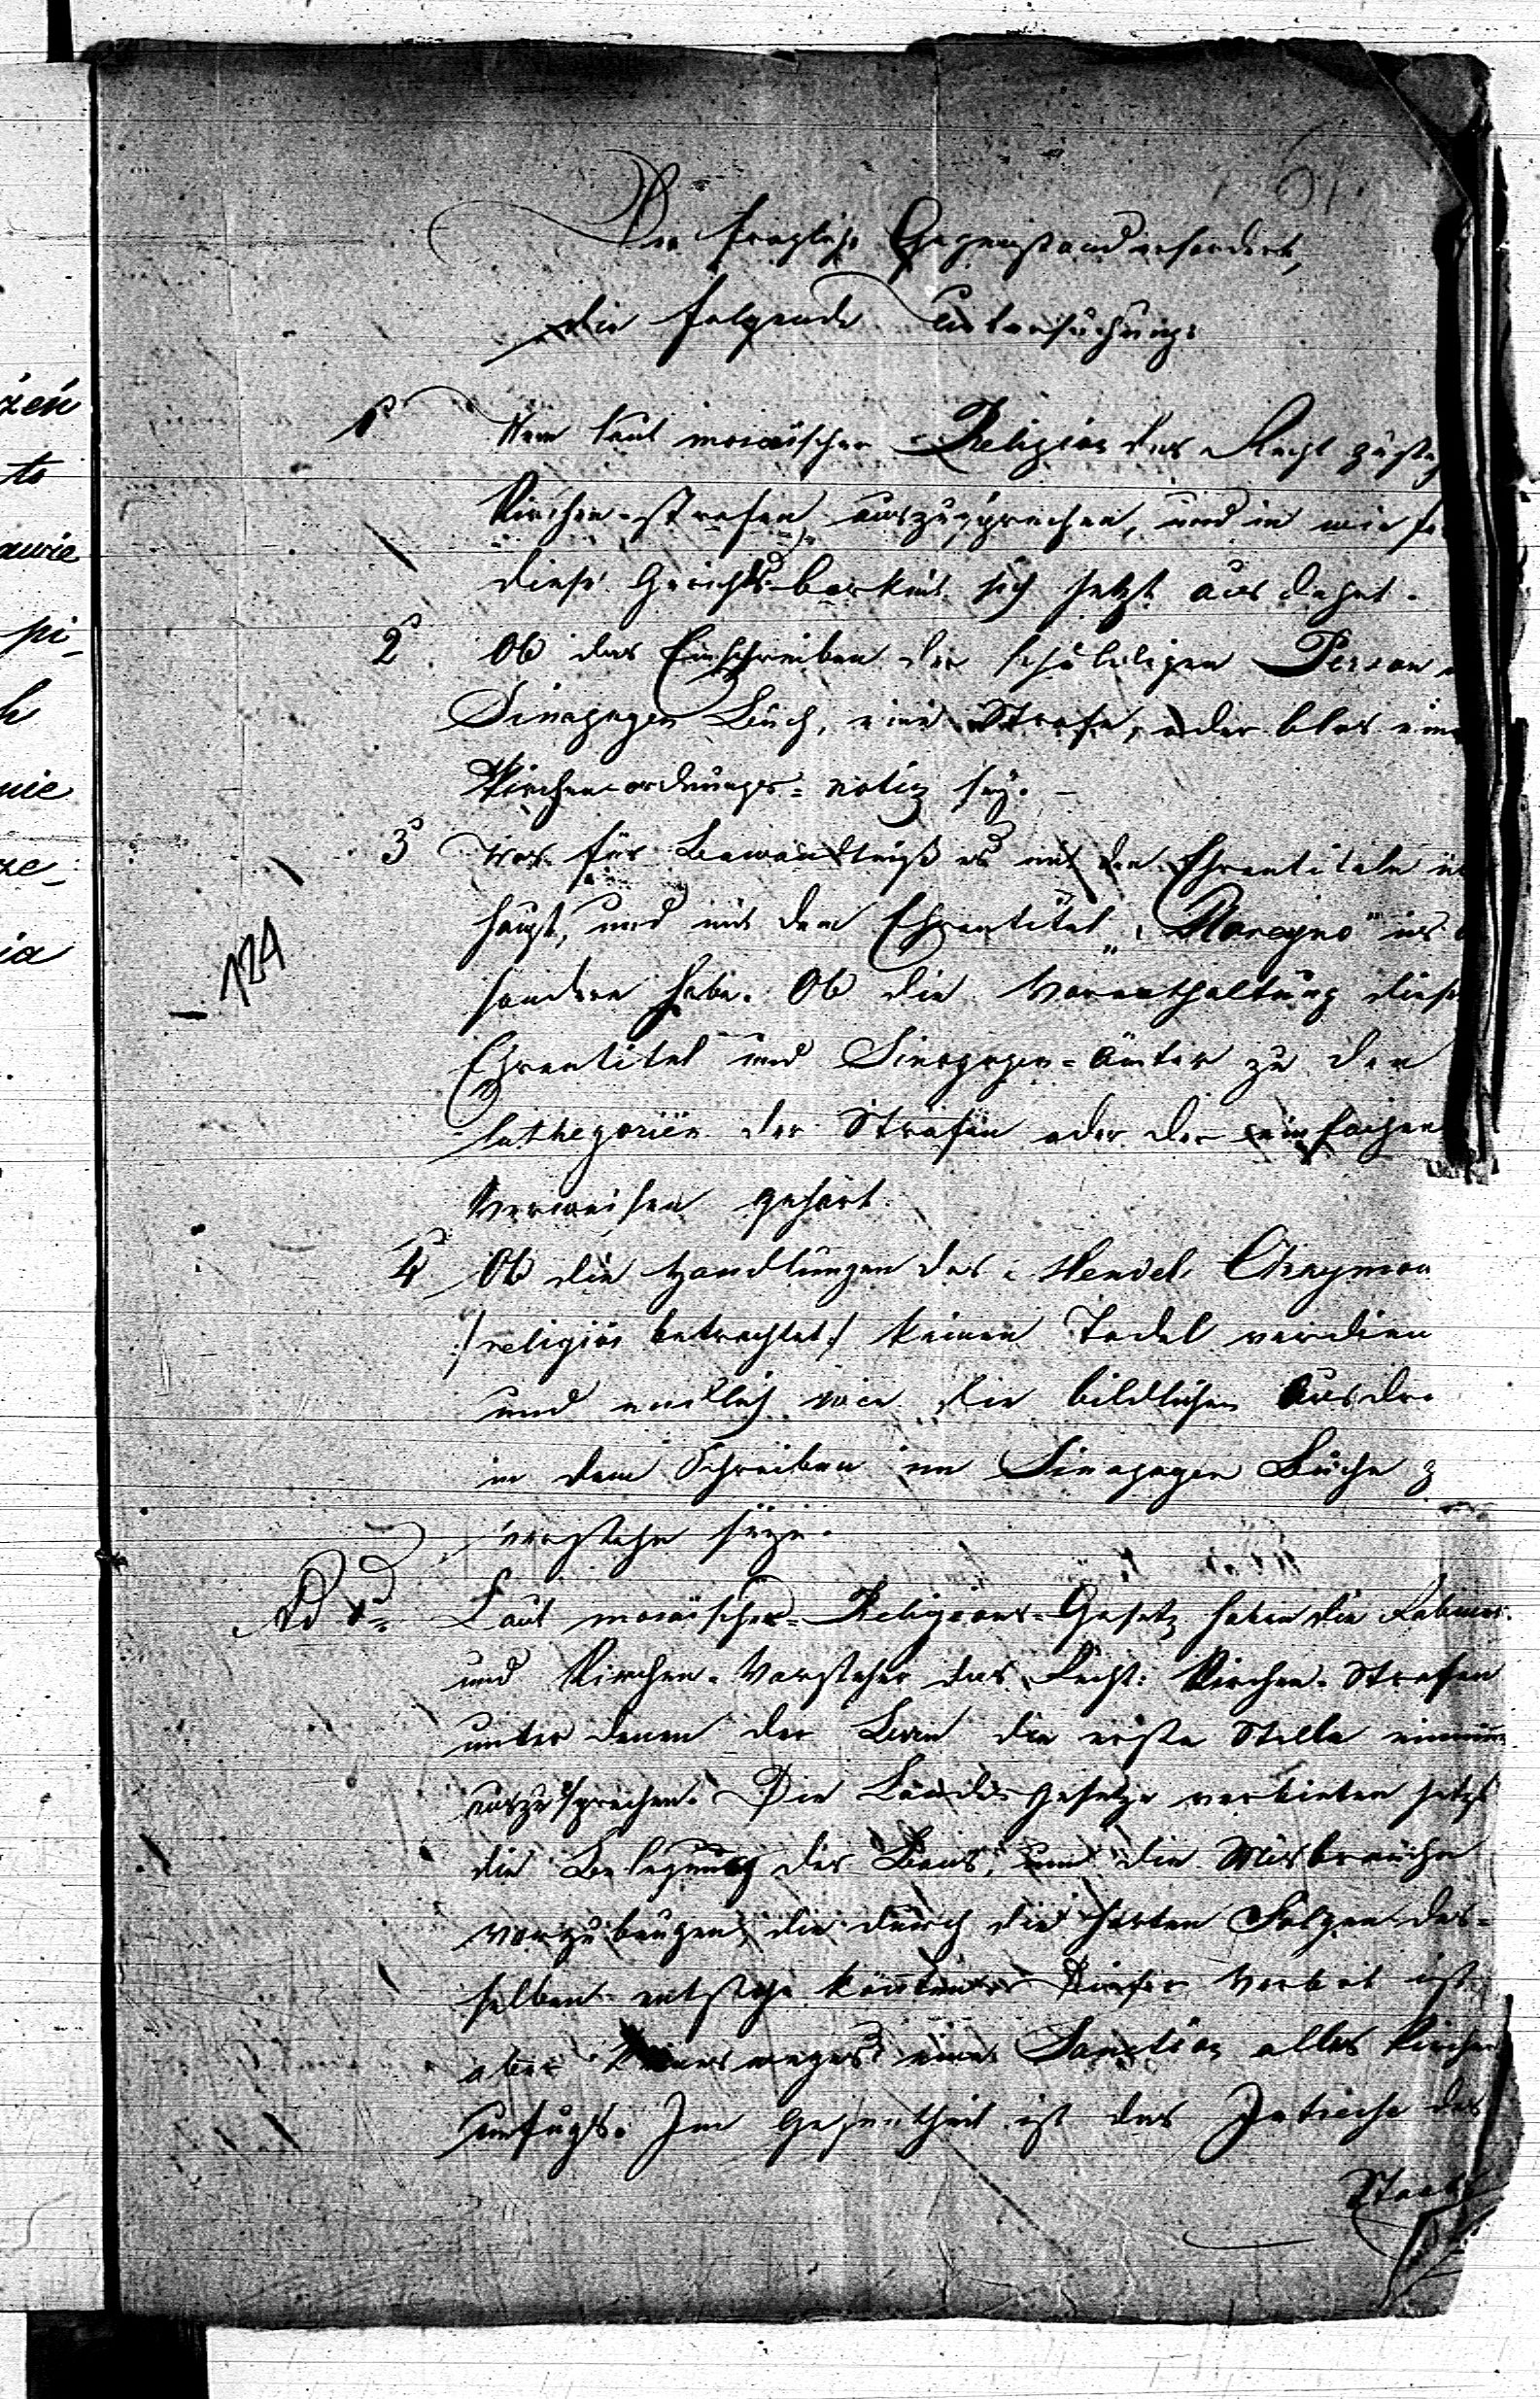 Der fragliche Gegenstand erfordert,
die folgende Untersuchung:
1° Wem laut mosaischer Religion das Recht zuste
Kirchen-strafen auszusprechen, und in wie fe
diese Gerichtsbarkeit sich jetzt ausdehnt.
2° Ob das Einschreiben der schuldigen Person
Sinagogen Buch, eine Strafe, oder blos eine
Kirchenordnungs-notiz sey. —
3° Was für Bewandtniß es mit den Ehrentiteln ü
haupt, und mit dem Ehrentitel „Moreyno" ins
sondere habe. Ob die Vorenthaltung diese
Ehrentitel und Sinagogen-ämter zu den
Cathegorien der Strafen oder der einfachen
Verweisen gehört.
4° Ob die Handlungen des Mendel
/: religiös betrachtet :/ keinen Tadel verdien
und endlich wie die bildlichen Ausdr
in dem Schreiben im Sinagogen Buche z
verstehn seyn.
Ad 1° Laut mosaischer-Religions-Gesetz haben die Rabiner
und Kirchen-Vorsteher das Recht: Kirchen-Strafen
unter denen der Bann die erste Stelle einnimmt
auszusprechen. Die Landesgesetze verbieten jetzt
die Belegung des Bans, um die Misbräuche
vorzubeugen, die durch die harten Folgen des-
selben entstehn könnten. Dieser Verbot ist
aber keineswegs eine Sanction alles Kirchen
unfugs. Im Gegentheil ist das Intresse des
Staats
124
zeń
to
awie
pi-
h
nie
ze-
ia